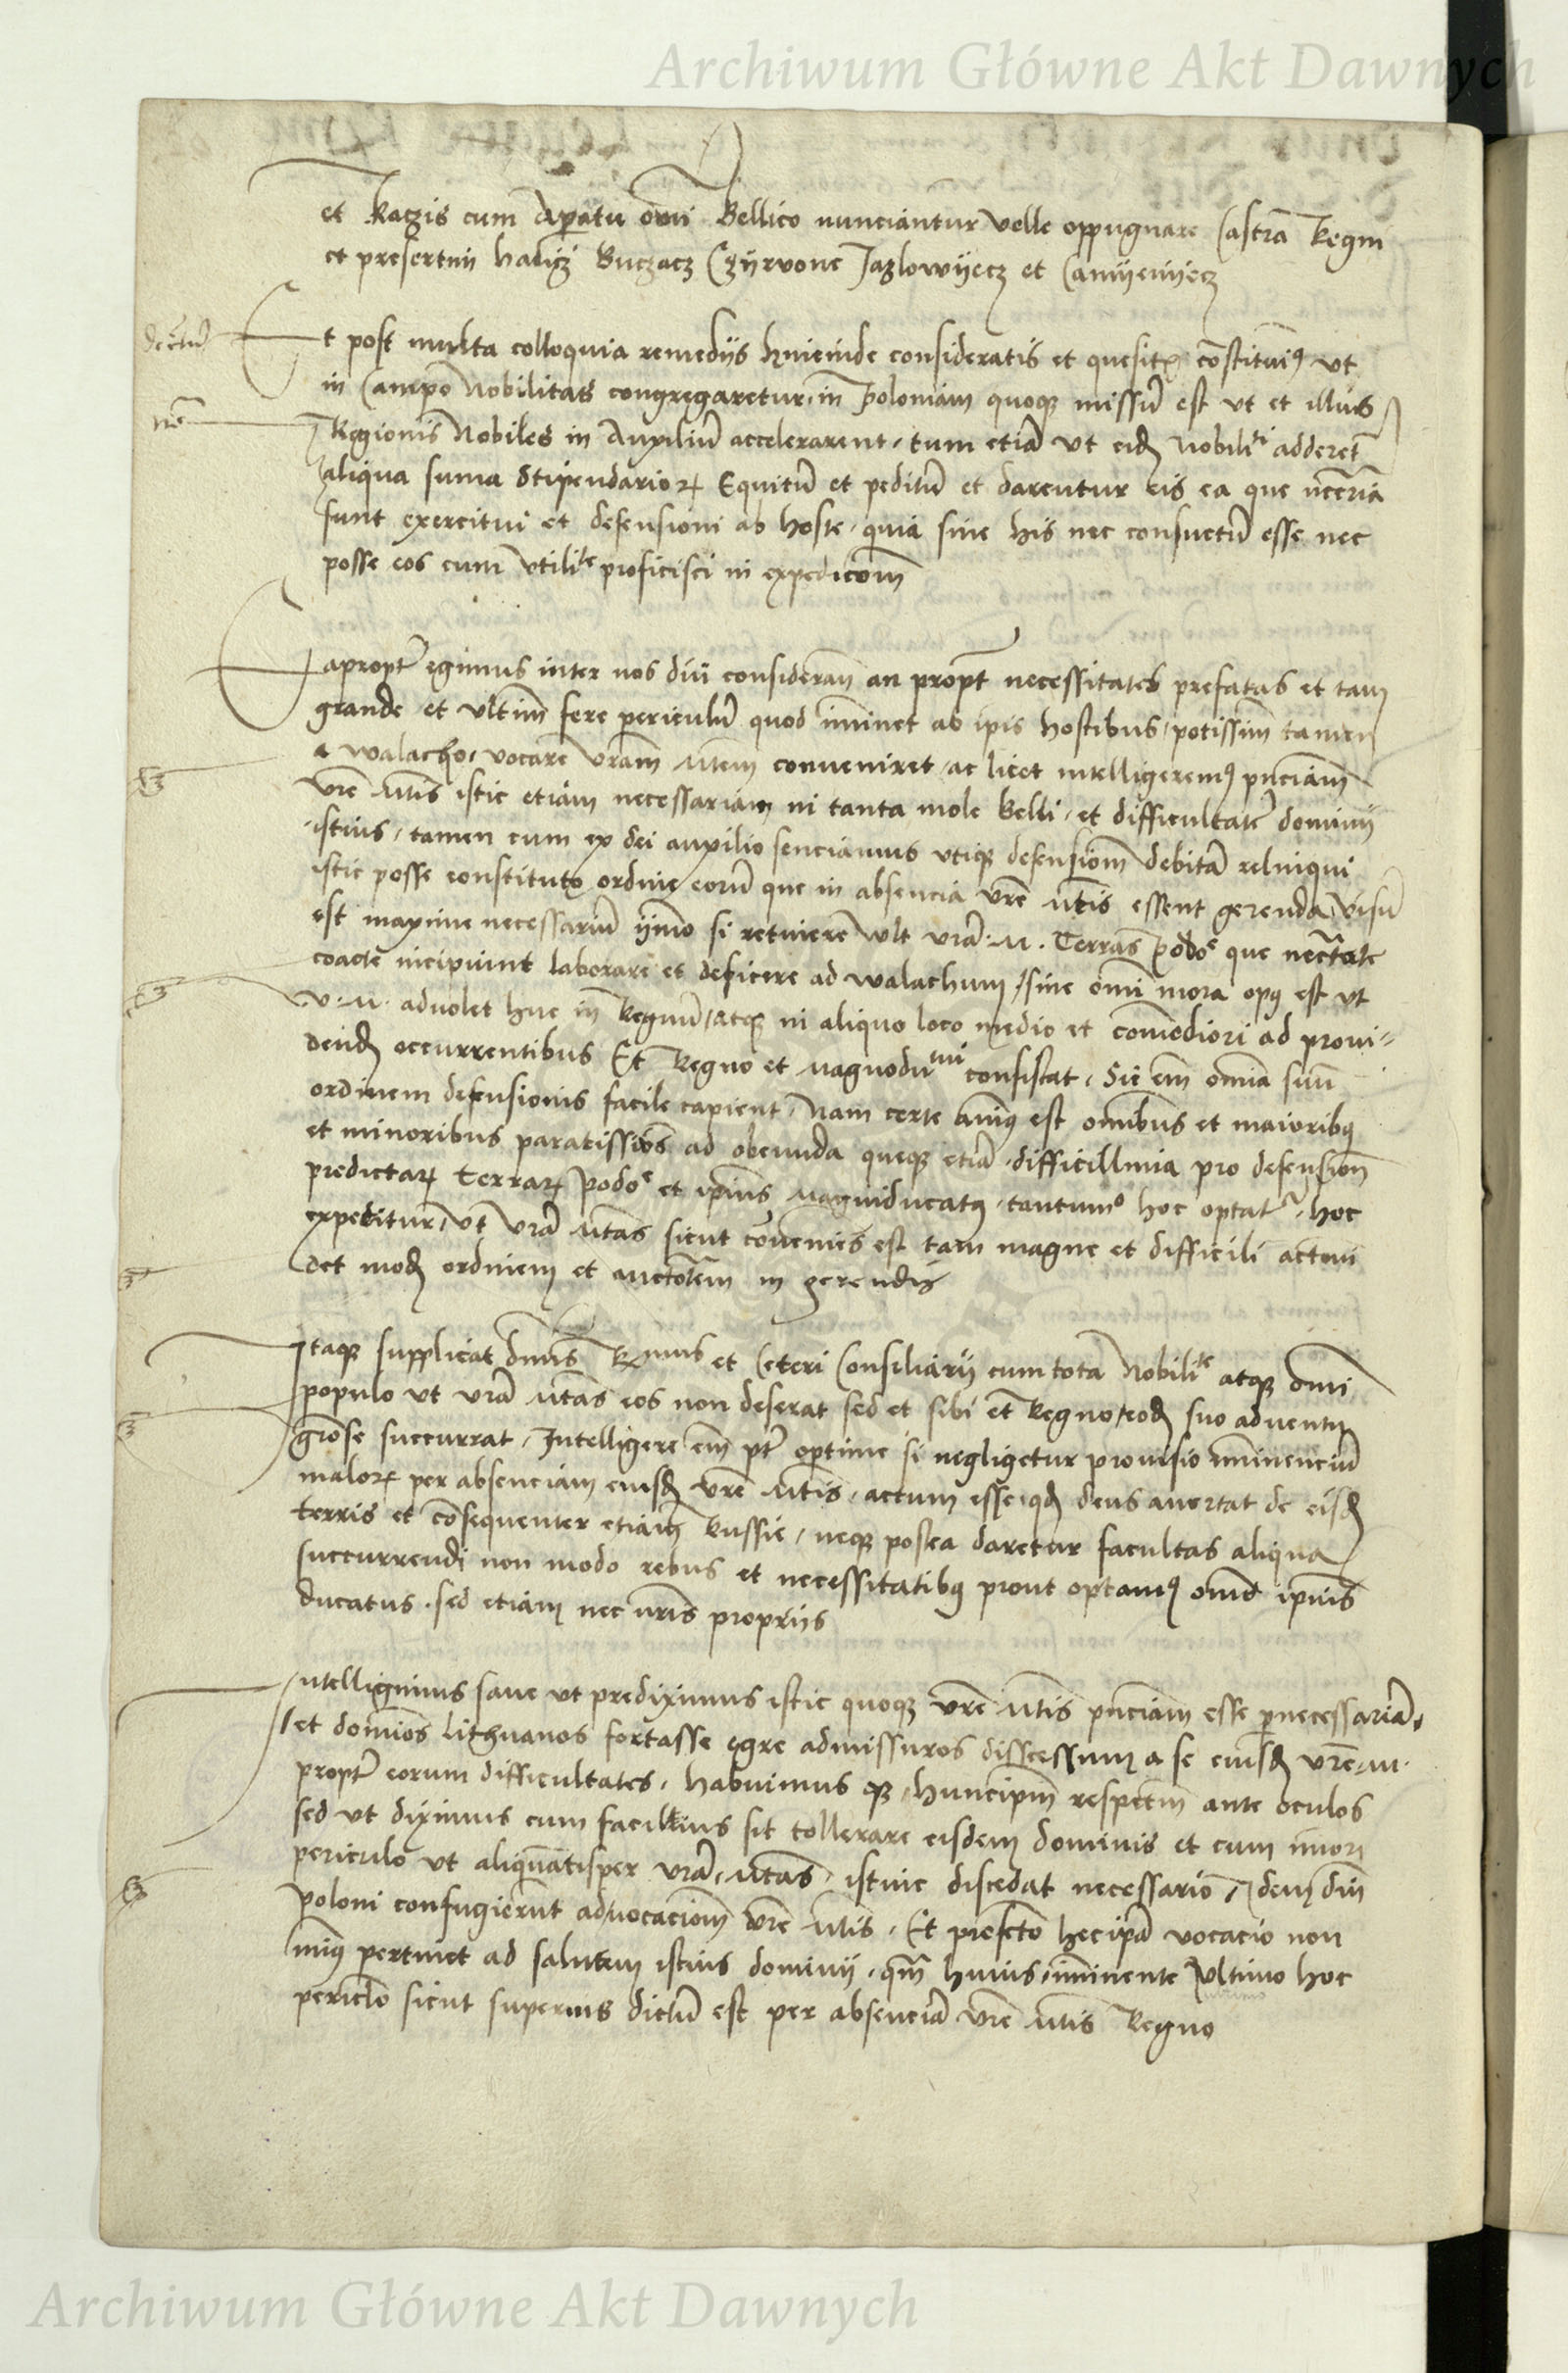 Archiwum Główne Akt Dawnych
et Raczis cum Apatu omi Bellico nunciantur velle oppugnare Castra Regni
et presertim halicz Buczacz Czyrvone Jazlowyecz et Camyenyecz
Et post multa colloquia remedys hincinde consideratis et quesitis constituimus ut
in Campo Nobilitas congregaretur, in Poloniam quoque missum est ut et illius
Regionis Nobiles in Auxilium accelerarent, tum etiam ut eidem Nobilitati adderetur
aliqua suma Stipendariorum Equitum et peditum et darentur eis ea que necessaria
sunt exercitui et defensioni ab hoste, quia sine his nec consuetum esse nec
posse eos cum utilitate proficisci in expedicionem
apropter egimus inter nos diu considerantes an propter necessitates prefatas et tam
grande et ultimum fere periculum quod iminet ab ipsis hostibus, potissimum tamen
a walacho, vocare vestram Mtem conveniret, ac licet intelligeremus presenciam
vestre Mtis istic etiam necessariam in tanta mole belli, et difficultate dominii
istius, tamen cum ex dei auxilio senciamus utique defensionem debitam relinqui
istic posse constituto ordine eorum que in absencia vestre Mtis essent gerenda, visum
est maxime necessarium ymmo si retinere vult vestra M. Terras podolie que necessitate
coacte incipiunt laborare et deficere ad walachum, sine omni mora opus est ut
V. M. advolet huc in Regnum, atque in aliquo loco medio et commodiori ad provi-
dendum occurrentibus Et Regno et Magnoducatui consistat, Sic enim omnia suum
ordinem defensionis facile capient, Nam certe animus est omnibus et maioribus
et minoribus paratissimus ad obeunda queque etiam difficillima pro defensione
predictarum terrarum podolie et ipsius Magniducatus, tantummodo hoc optatur, hoc
expetitur, ut vestra Mtas sicut conveniens est tam magne et difficili actioni
det modum ordinem et auctoritatem in gerendis
Itaque supplicat dominus Rmus et Ceteri Consiliarii cum tota Nobilitate atque omni
populo ut vestra Mtas eos non deserat sed et sibi et Regno eodem suo adventu
graciose succurrat, Intelligere enim potest optime si negligetur provisio imminencium
malorum per absenciam eiusdem vestre Mtis, actum esse, quod deus avertat de eisdem
terris et consequenter etiam Russie, neque postea daretur facultas aliqua
succurrendi non modo rebus et necessitatibus prout optamus omnes ipsius
ducatus, sed etiam nec vestris propriis
Intelligimus sane ut prediximus istic quoque vestre Mtis presenciam esse pernecessariam,
et dominos lithuanos fortasse egre admissuros discessum a se eiusdem vestre M.
propter eorum difficultates, habuimus que huncipsum respectum ante oculos
sed ut diximus cum facilius sit tollerare eisdem dominis et cum minori
periculo ut aliquantisper vestra Mtas, istinc discedat necessario, Idem domini
poloni confugierunt ad vocacionem vestre Mtis, Et profecto hec ipsa vocacio non
minus pertinet ad salutem istius dominii, quam huius, imminente ultimo hoc
periculo sicut superius dictum est per absenciam vestre Mtis Regno
Archiwum Główne Akt Dawnych